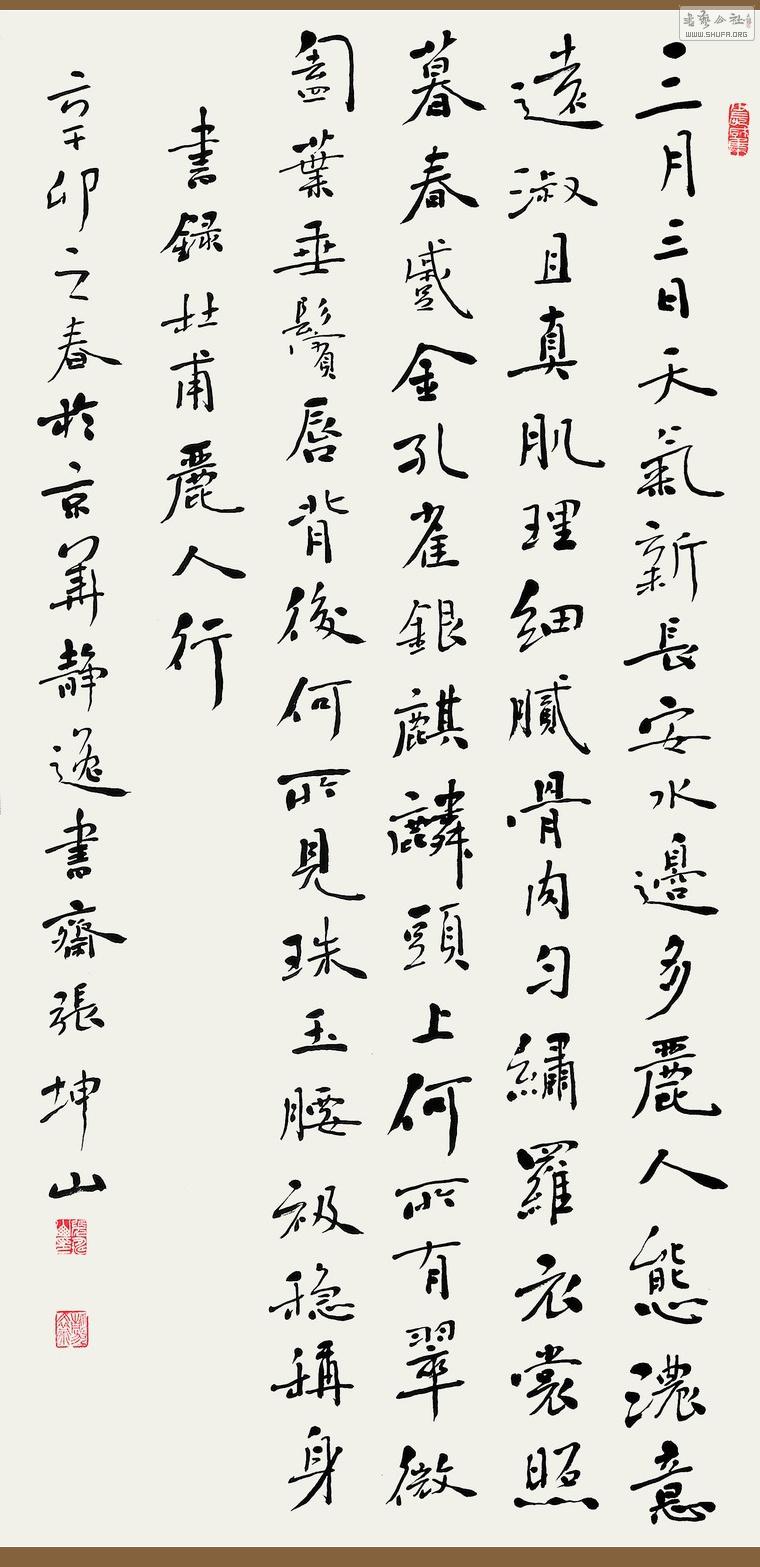 三月三日天氣新長安水邊多麗人態濃意
遠淑且真肌理細膩骨肉勻繡羅衣裳照
暮春蹙金孔雀銀麒麟頭上何所有翠微
匎葉垂鬢唇背後何所見珠玉腰衱稳稱身
書錄杜甫麗人行
辛卯之春於京華靜逸書齋張坤山
書藝公社
WWW.SHUFA.ORG